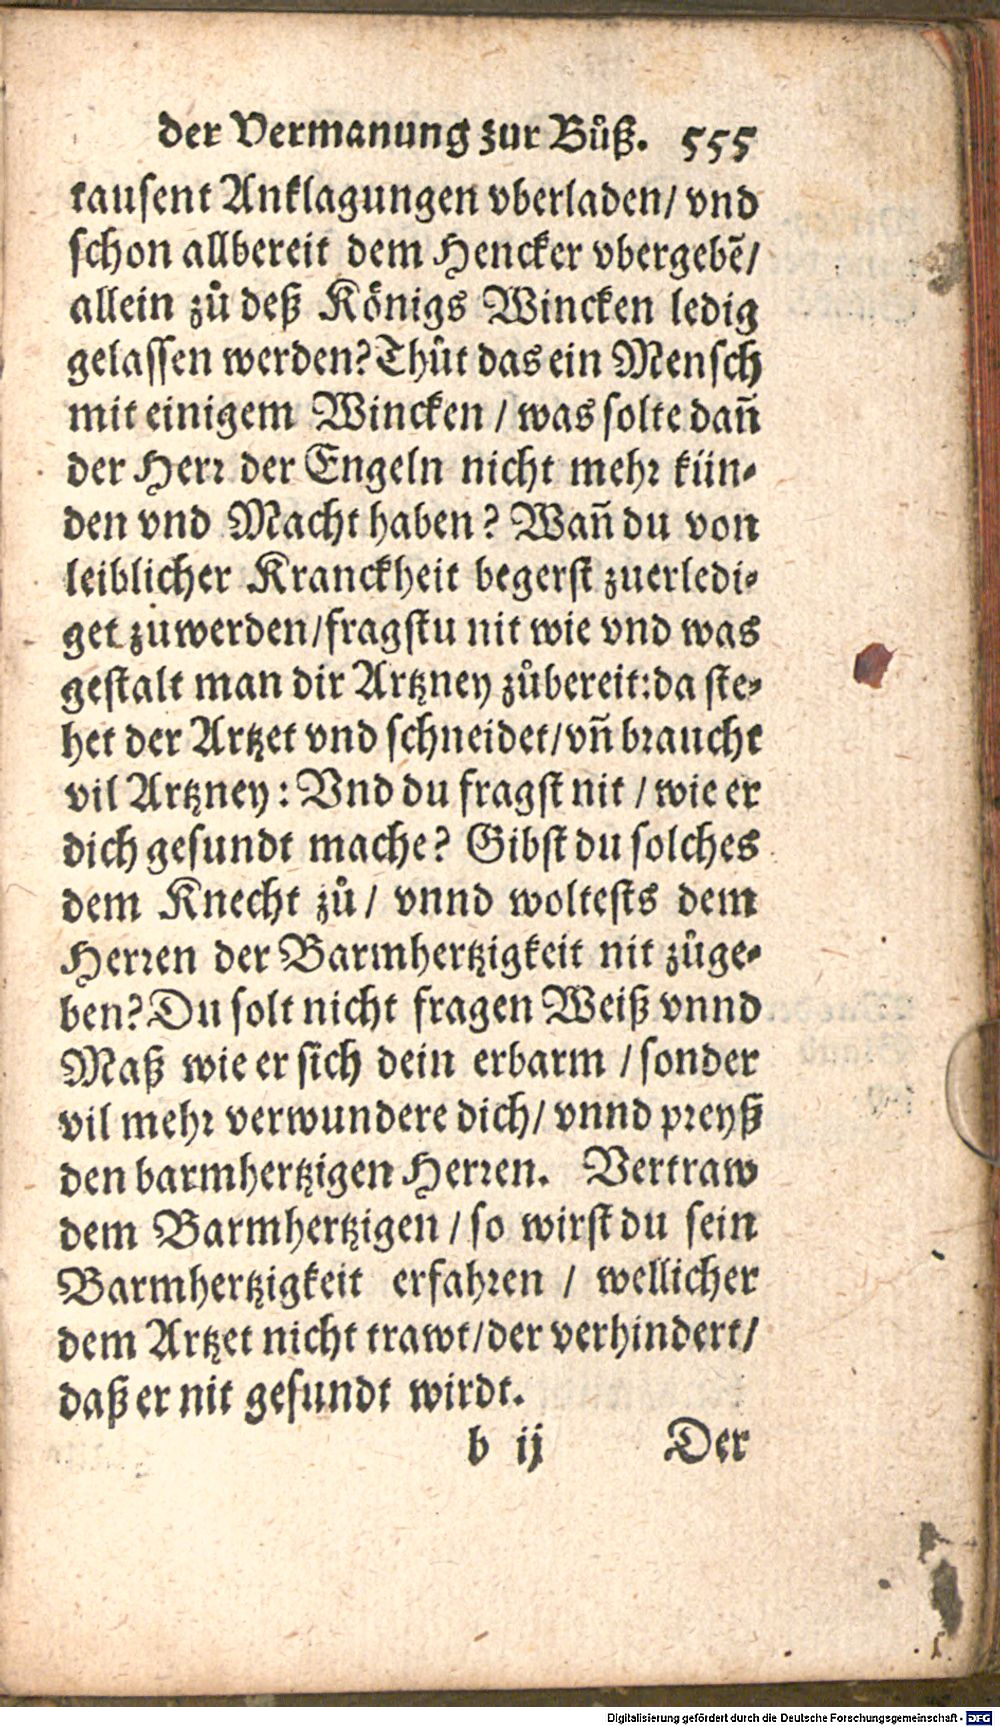 der Vermanung zur Bůß. 555
tausent Anklagungen vberladen/ vnd
schon allbereit dem Hencker vbergebẽ/
allein zů deß Königs Wincken ledig
gelassen werden? Thůt das ein Mensch
mit einigem Wincken / was solte dañ
der Herr der Engeln nicht mehr kün⸗
den vnd Macht haben? Wañ du von
leiblicher Kranckheit begerst zuerledi⸗
get zuwerden/fragstu nit wie vnd was
gestalt man dir Artzney zůbereit: da ste⸗
het der Artzet vnd schneidet/vñ braucht
vil Artzney: Vnd du fragst nit / wie er
dich gesundt mache? Gibst du solches
dem Knecht zů/ vnnd woltests dem
Herren der Barmhertzigkeit nit zůge⸗
ben? Du solt nicht fragen Weiß vnnd
Maß wie er sich dein erbarm / sonder
vil mehr verwundere dich/ vnnd preyß
den barmhertzigen Herren. Vertraw
dem Barmhertzigen / so wirst du sein
Barmhertzigkeit erfahren / wellicher
dem Artzet nicht trawt/der verhindert/
daß er nit gesundt wirdt.
b ij Der
Digitalisierung gefördert durch die Deutsche Forschungsgemeinschaft - DFG